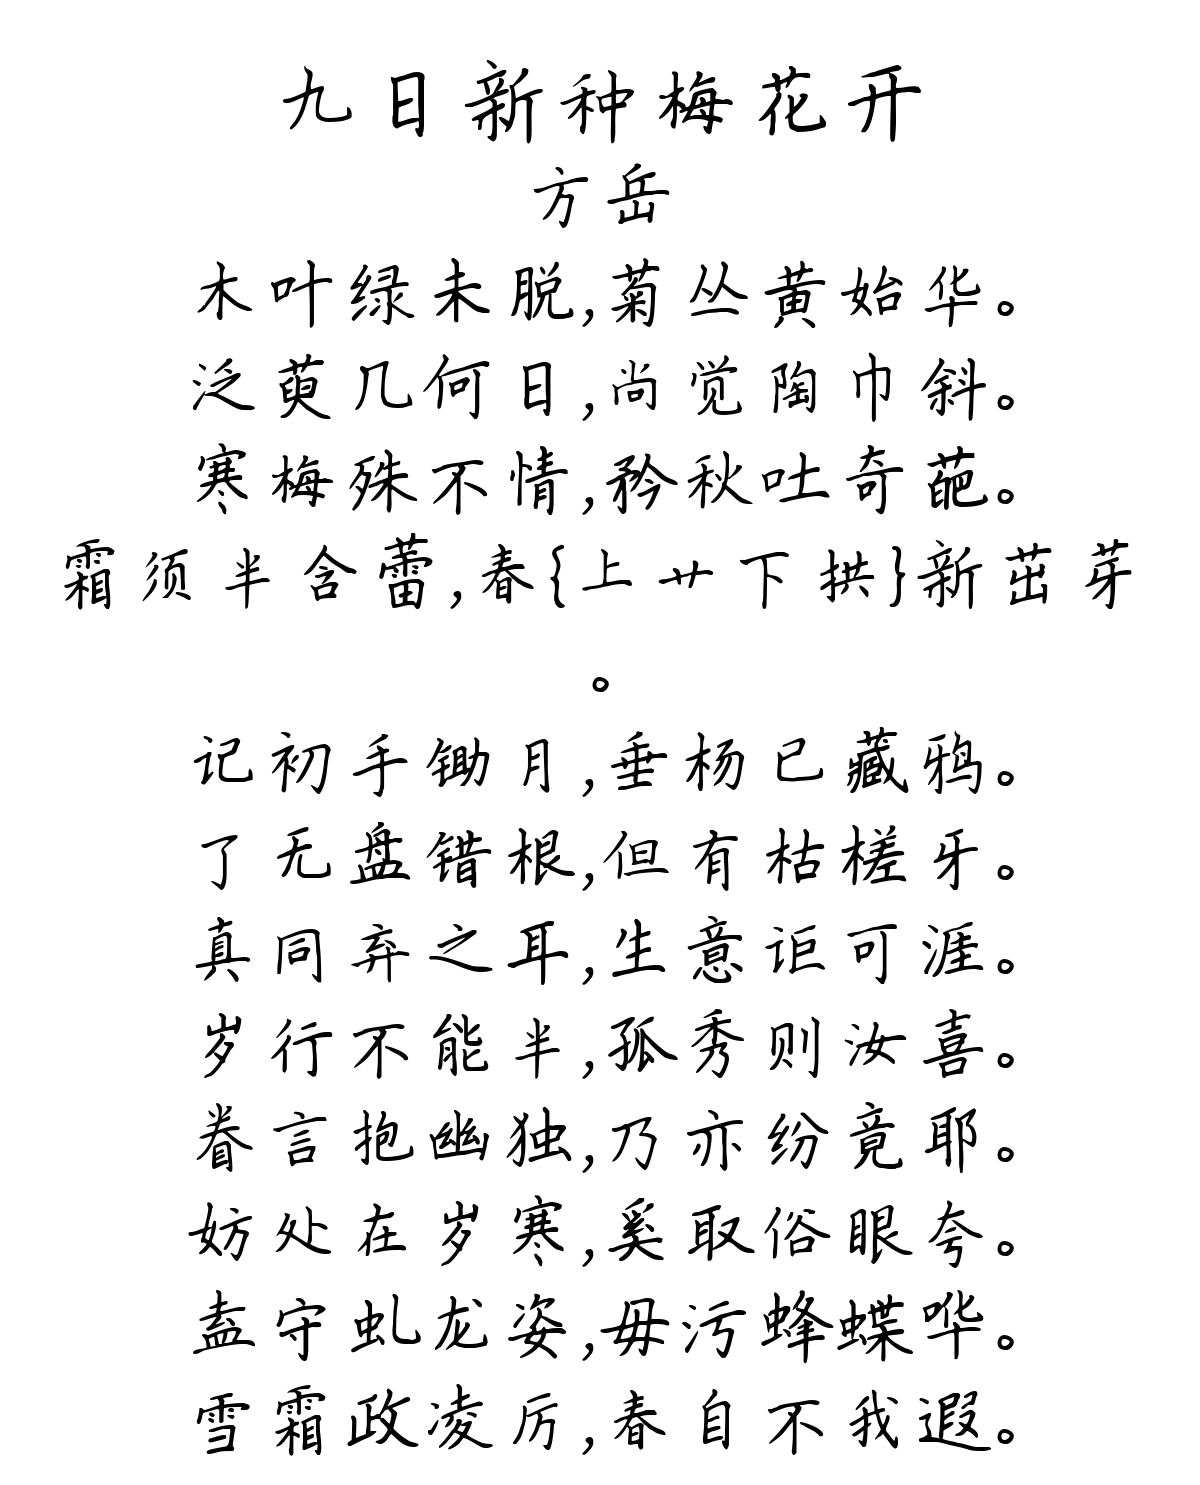 九日新种梅花开
方岳
木叶绿未脱,菊丛黄始华。
泛萸几何日,尚觉陶巾斜。
寒梅殊不情,矜秋吐奇葩。
霜须半含蕾,春{上艹下拱}新茁芽
。
记初手锄月,垂杨已藏鸦。
了无盘错根,但有枯槎牙。
真同弃之耳,生意讵可涯。
岁行不能半,孤秀则汝喜。
眷言抱幽独,乃亦纷竟耶。
妨处在岁寒,奚取俗眼夸。
盍守虬龙姿,毋污蜂蝶哗。
雪霜政凌厉,春自不我遐。